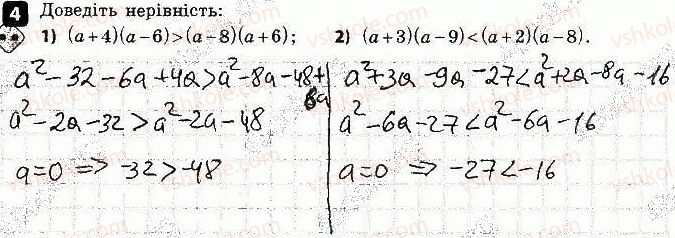 4 Доведіть нерівність:
1) (a+4)(a−6)>(a−8)(a+6); 2) (a+3)(a−9)<(a+2)(a−8).
a²−32−6a+4a>a²−8a−48+6a
a²−2a−32>a²−2a−48
a=0 ⇒ −32>−48
a²+3a−9a−27<a²+2a−8a−16
a²−6a−27<a²−6a−16
a=0 ⇒ −27<−16